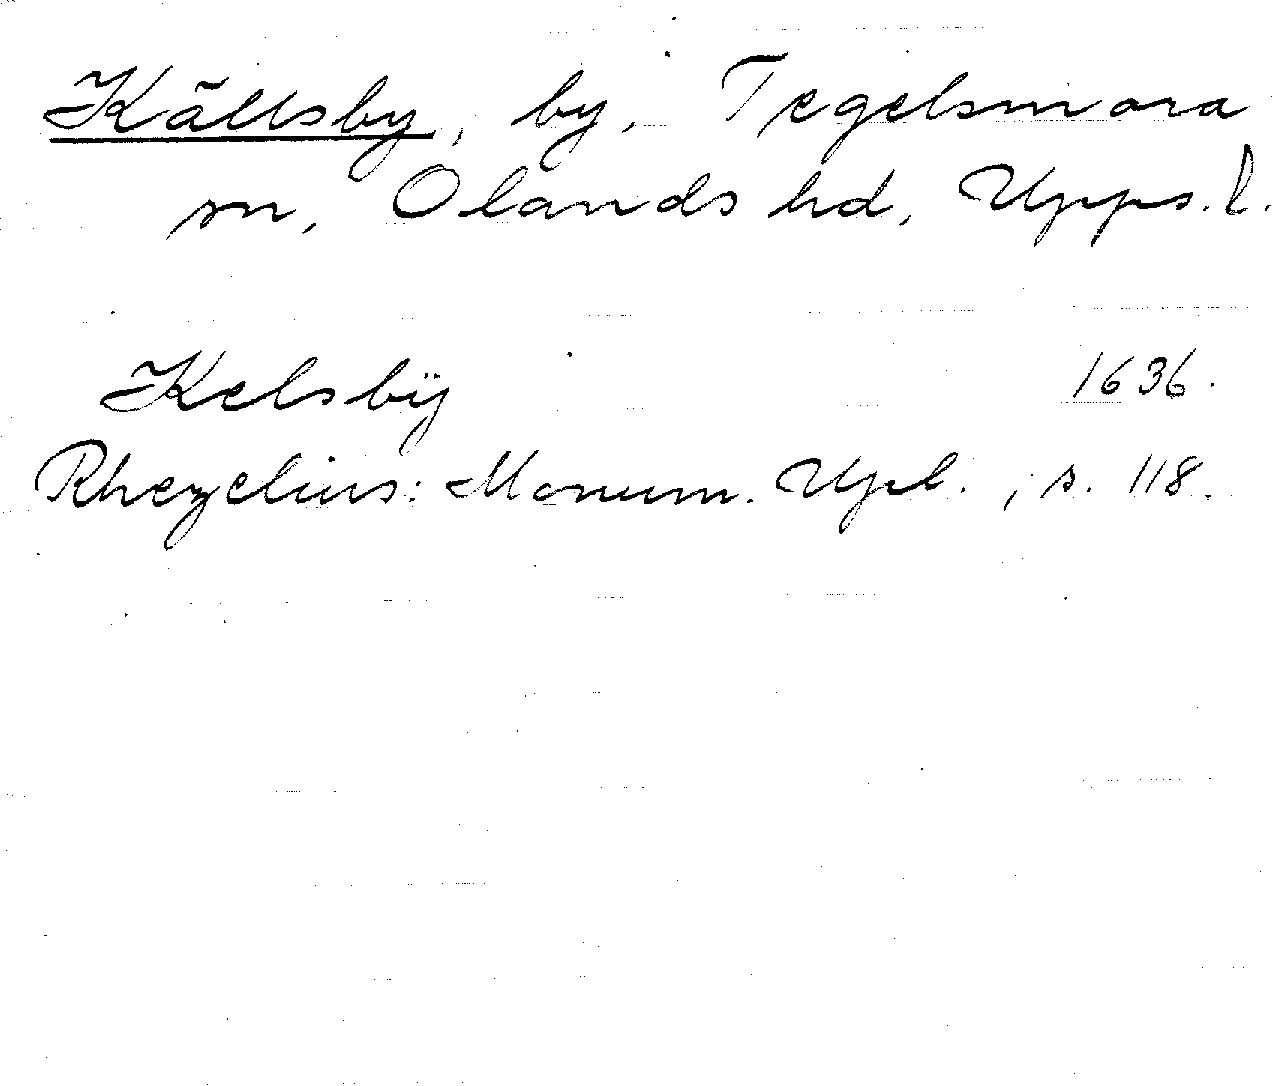 Källsby, by, Tegelsmora
sn, Olands hd, Upps. l.
Kelsbÿ 1636.
Rhezelius: Monum. Upl., s. 118.